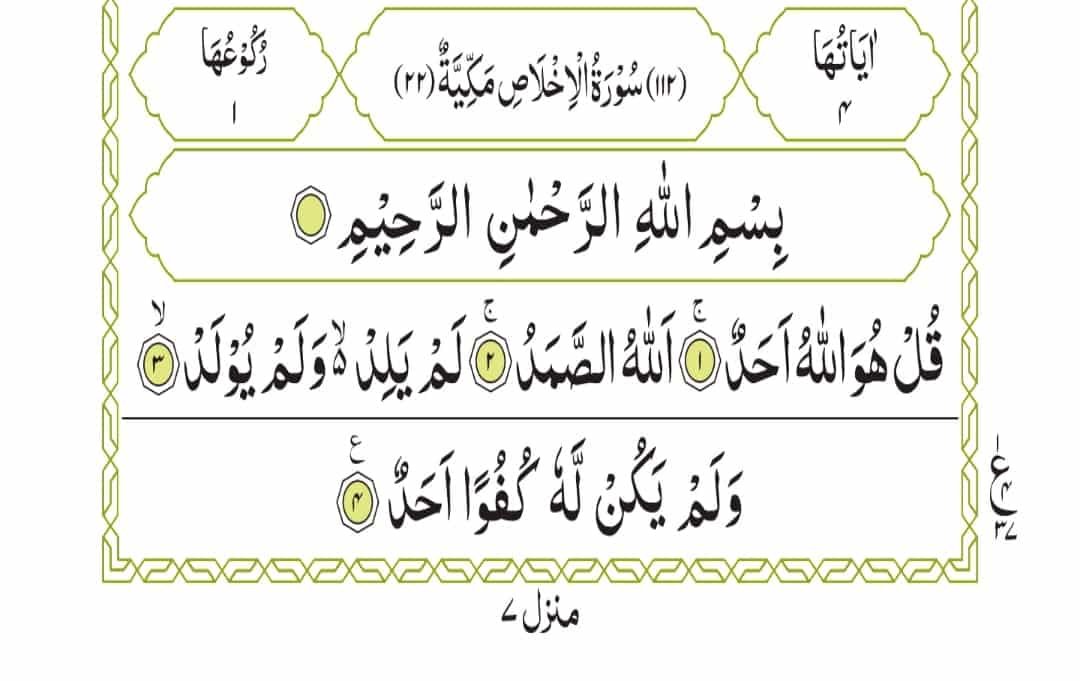 اٰيَاتُهَا
۴
(۱۱۲) سُوْرَةُ الْاِخْلَاصِ مَكِّيَّةٌ (۲۲)
رُكُوْعُهَا
۱
بِسْمِ اللّٰهِ الرَّحْمٰنِ الرَّحِيْمِ
قُلْ هُوَ اللّٰهُ اَحَدٌ ۚ ۱ اَللّٰهُ الصَّمَدُ ۚ ۲ لَمْ يَلِدْ ۙ۵ وَلَمْ يُوْلَدْ ۙ ۳
وَلَمْ يَكُنْ لَّهٗ كُفُوًا اَحَدٌ ع ۴
ع
۴
۳۷
منزل ۷